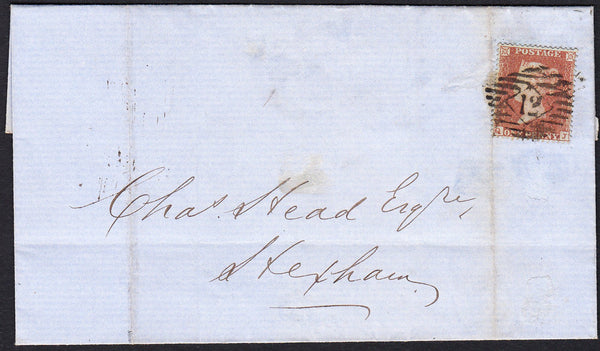 POSTAGE
12
Chas. Head Esqre,
Hexham